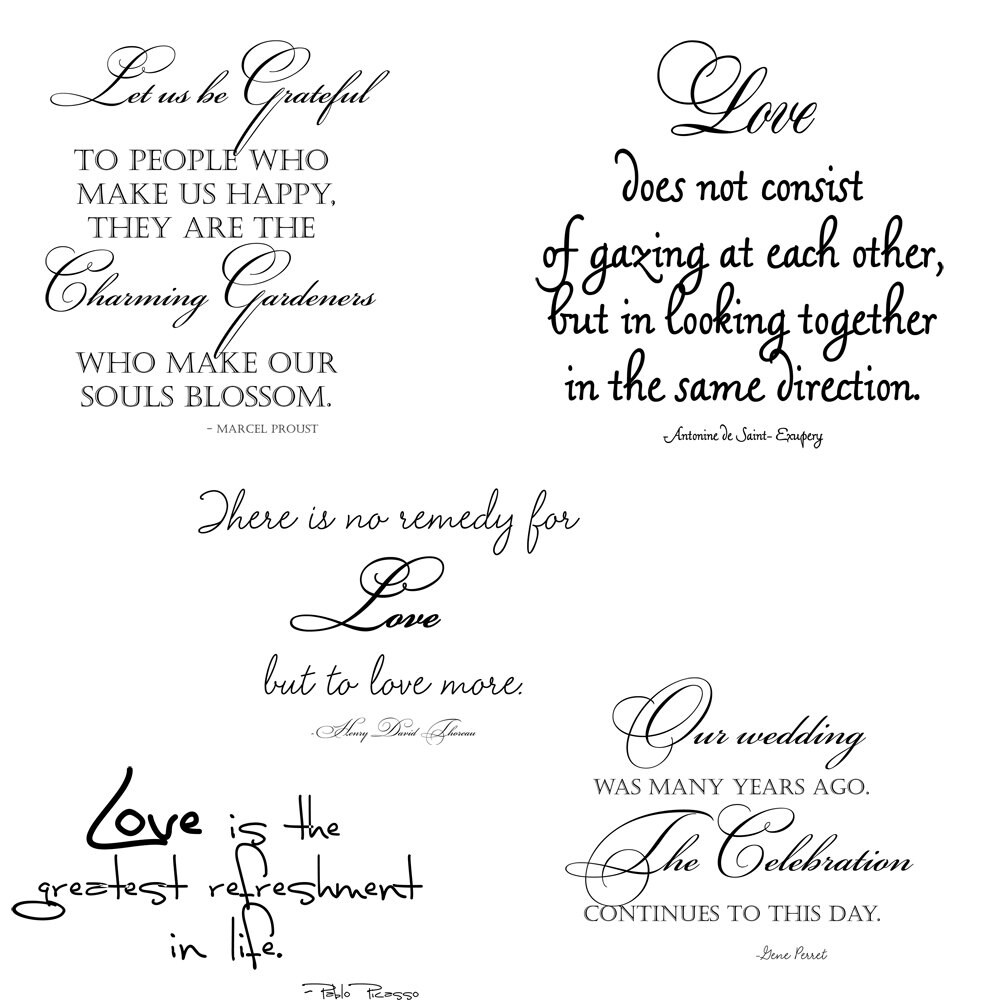 Let us be Grateful
TO PEOPLE WHO
MAKE US HAPPY,
THEY ARE THE
Charming Gardeners
WHO MAKE OUR
SOULS BLOSSOM.
- MARCEL PROUST
Love
does not consist
of gazing at each other,
but in looking together
in the same direction.
-Antonine de Saint- Exupery
There is no remedy for
Love
but to love more.
-Henry David Thoreau
Our wedding
WAS MANY YEARS AGO.
The Celebration
CONTINUES TO THIS DAY.
-Gene Perret
Love is the
greatest refreshment
in life.
- Pablo Picasso